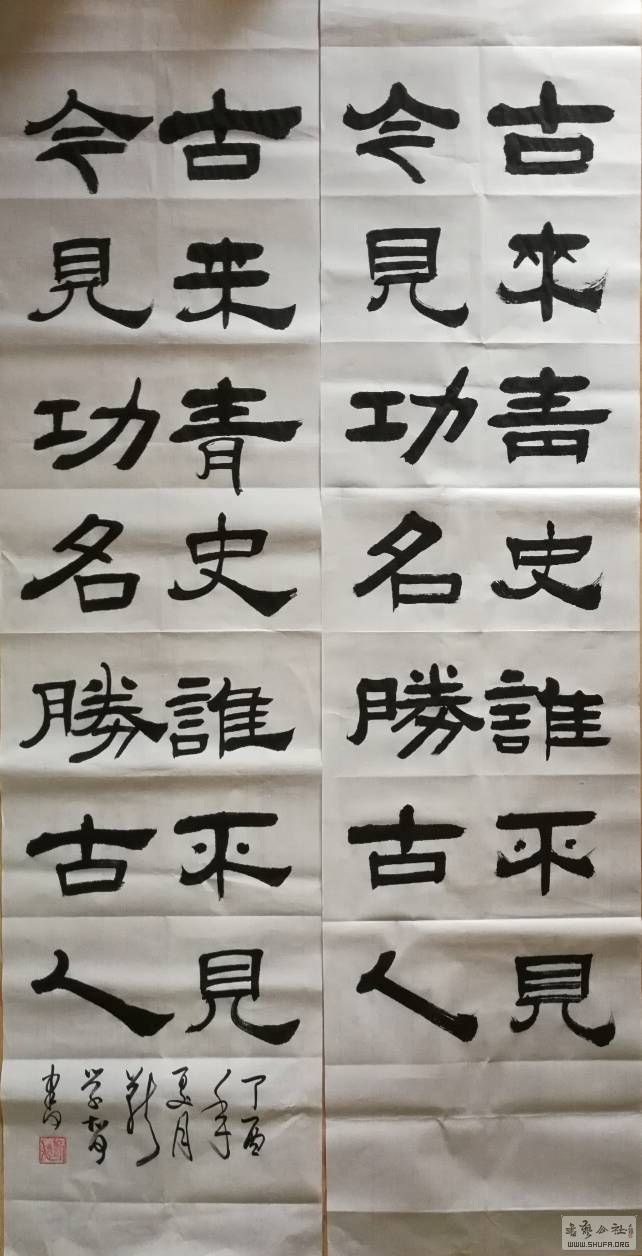 古來青史誰不見
今見功名勝古人
古来青史誰不見
今見功名勝古人
丁酉
年
夏月
学智
书
書藝公社
WWW.SHUFA.ORG